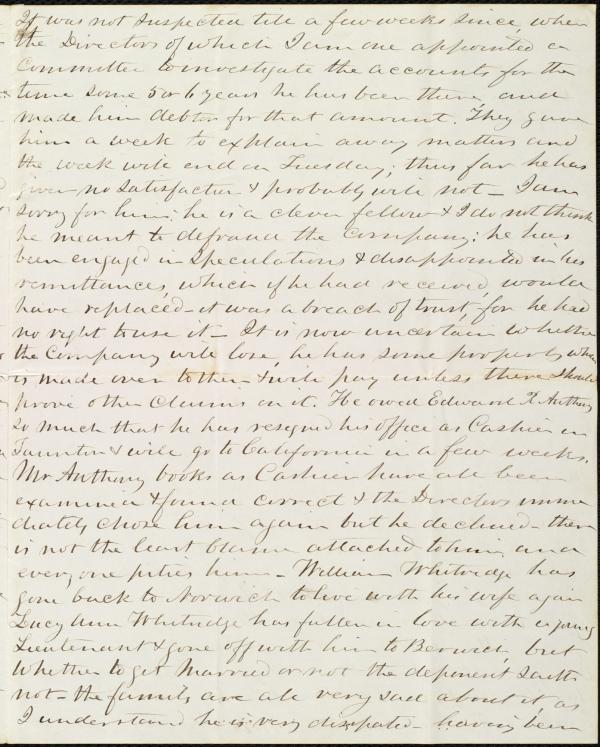 It was not suspected till a few weeks since, when
the Directors of which I am one appointed a
Committee to investigate the accounts for the
time some 5 or 6 years he has been there, and
made him debtor for that amount. They gave
him a week to explain away matters and
the week will end on Tuesday; thus far he has
given no satisfaction & probably will not - I am
sorry for him; he is a clever fellow & I do not think
he meant to defraud the Company; he has
been engaged in speculations & disappointed in his
remittances, which if he had received, would
have replaced - it was a breach of trust, for he had
no right to use it - It is now uncertain whether
the Company will lose, he has some property which
is made over to them - & will pay unless there should
prove other claims on it. He owed Edward Anthony
so much that he has resigned his office as Cashier in
Taunton & will go to California in a few weeks.
Mr Anthony books as Cashier have all been
examined & found correct & the Directors imme
diately chose him again but he declined - there
is not the least blame attached to him and
every one pities him - William Whitridge has
gone back to Norwich to live with his wife again
Lucy Ann Whitridge has fallen in love with a young
Lieutenant & gone off with him to Berwick, but
whether to get married or not the deponent saith
not - the family are all very sad about it, as
I understand he is very dissipated - having been